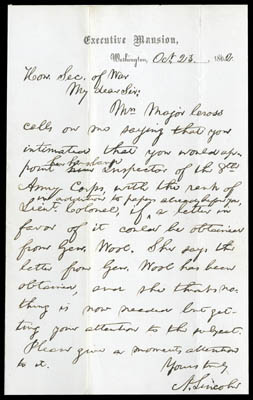 Executive Mansion,
Washington, Oct. 23, 1862.
Hon. Sec. of War
My dear Sir:
Mrs. Major Cross
calls on me saying that you
intimated that you would ap-
her husband
point Inspector of the 8th
Army Corps, with the rank of
in addition to papers already before you,
Lieut. Colonel, if a letter in
favor of it could be obtained
from Gen. Wool. She says the
letter from Gen. Wool has been
obtained, and she thinks no-
thing is now needed but get-
ting your attention to the subject.
Please give a moments attention
to it.
Yours truly,
A. Lincoln